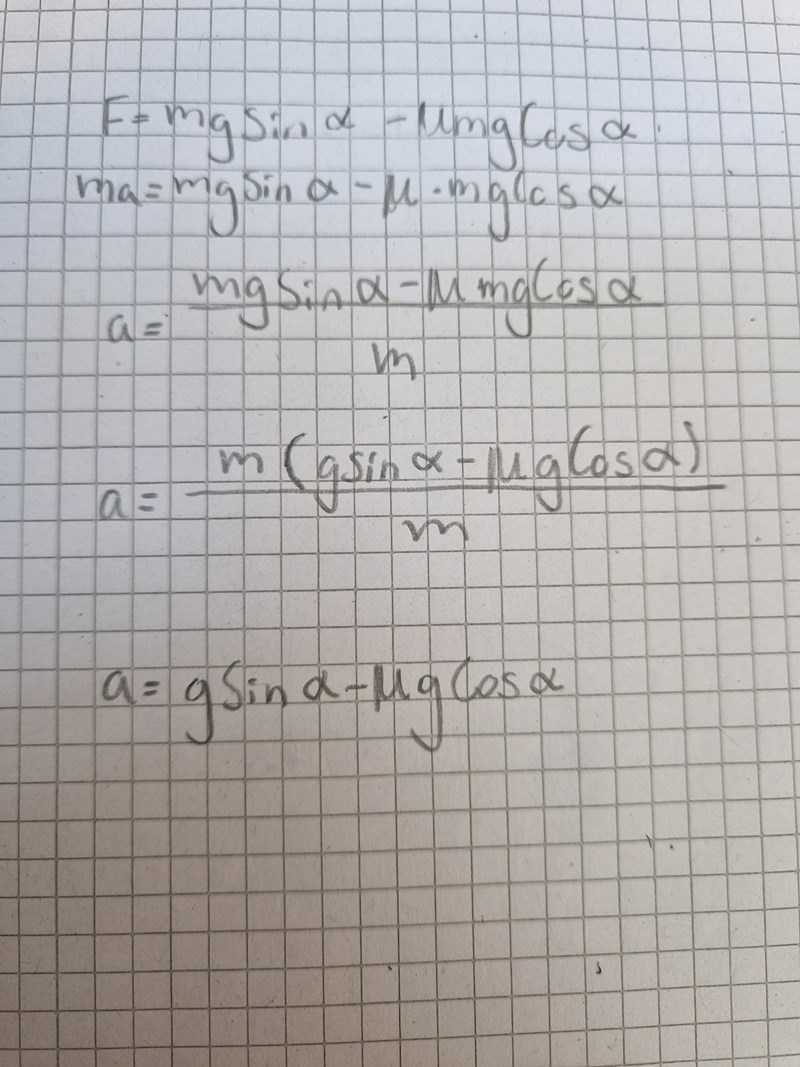 F = mg Sin α - μmg Cos α
ma = mg Sin α - μ · mg Cos α
a = mg Sin α - μ mg Cos α / m
a = m (g sin α - μg Cos α) / m
a = g Sin α - μg Cos α